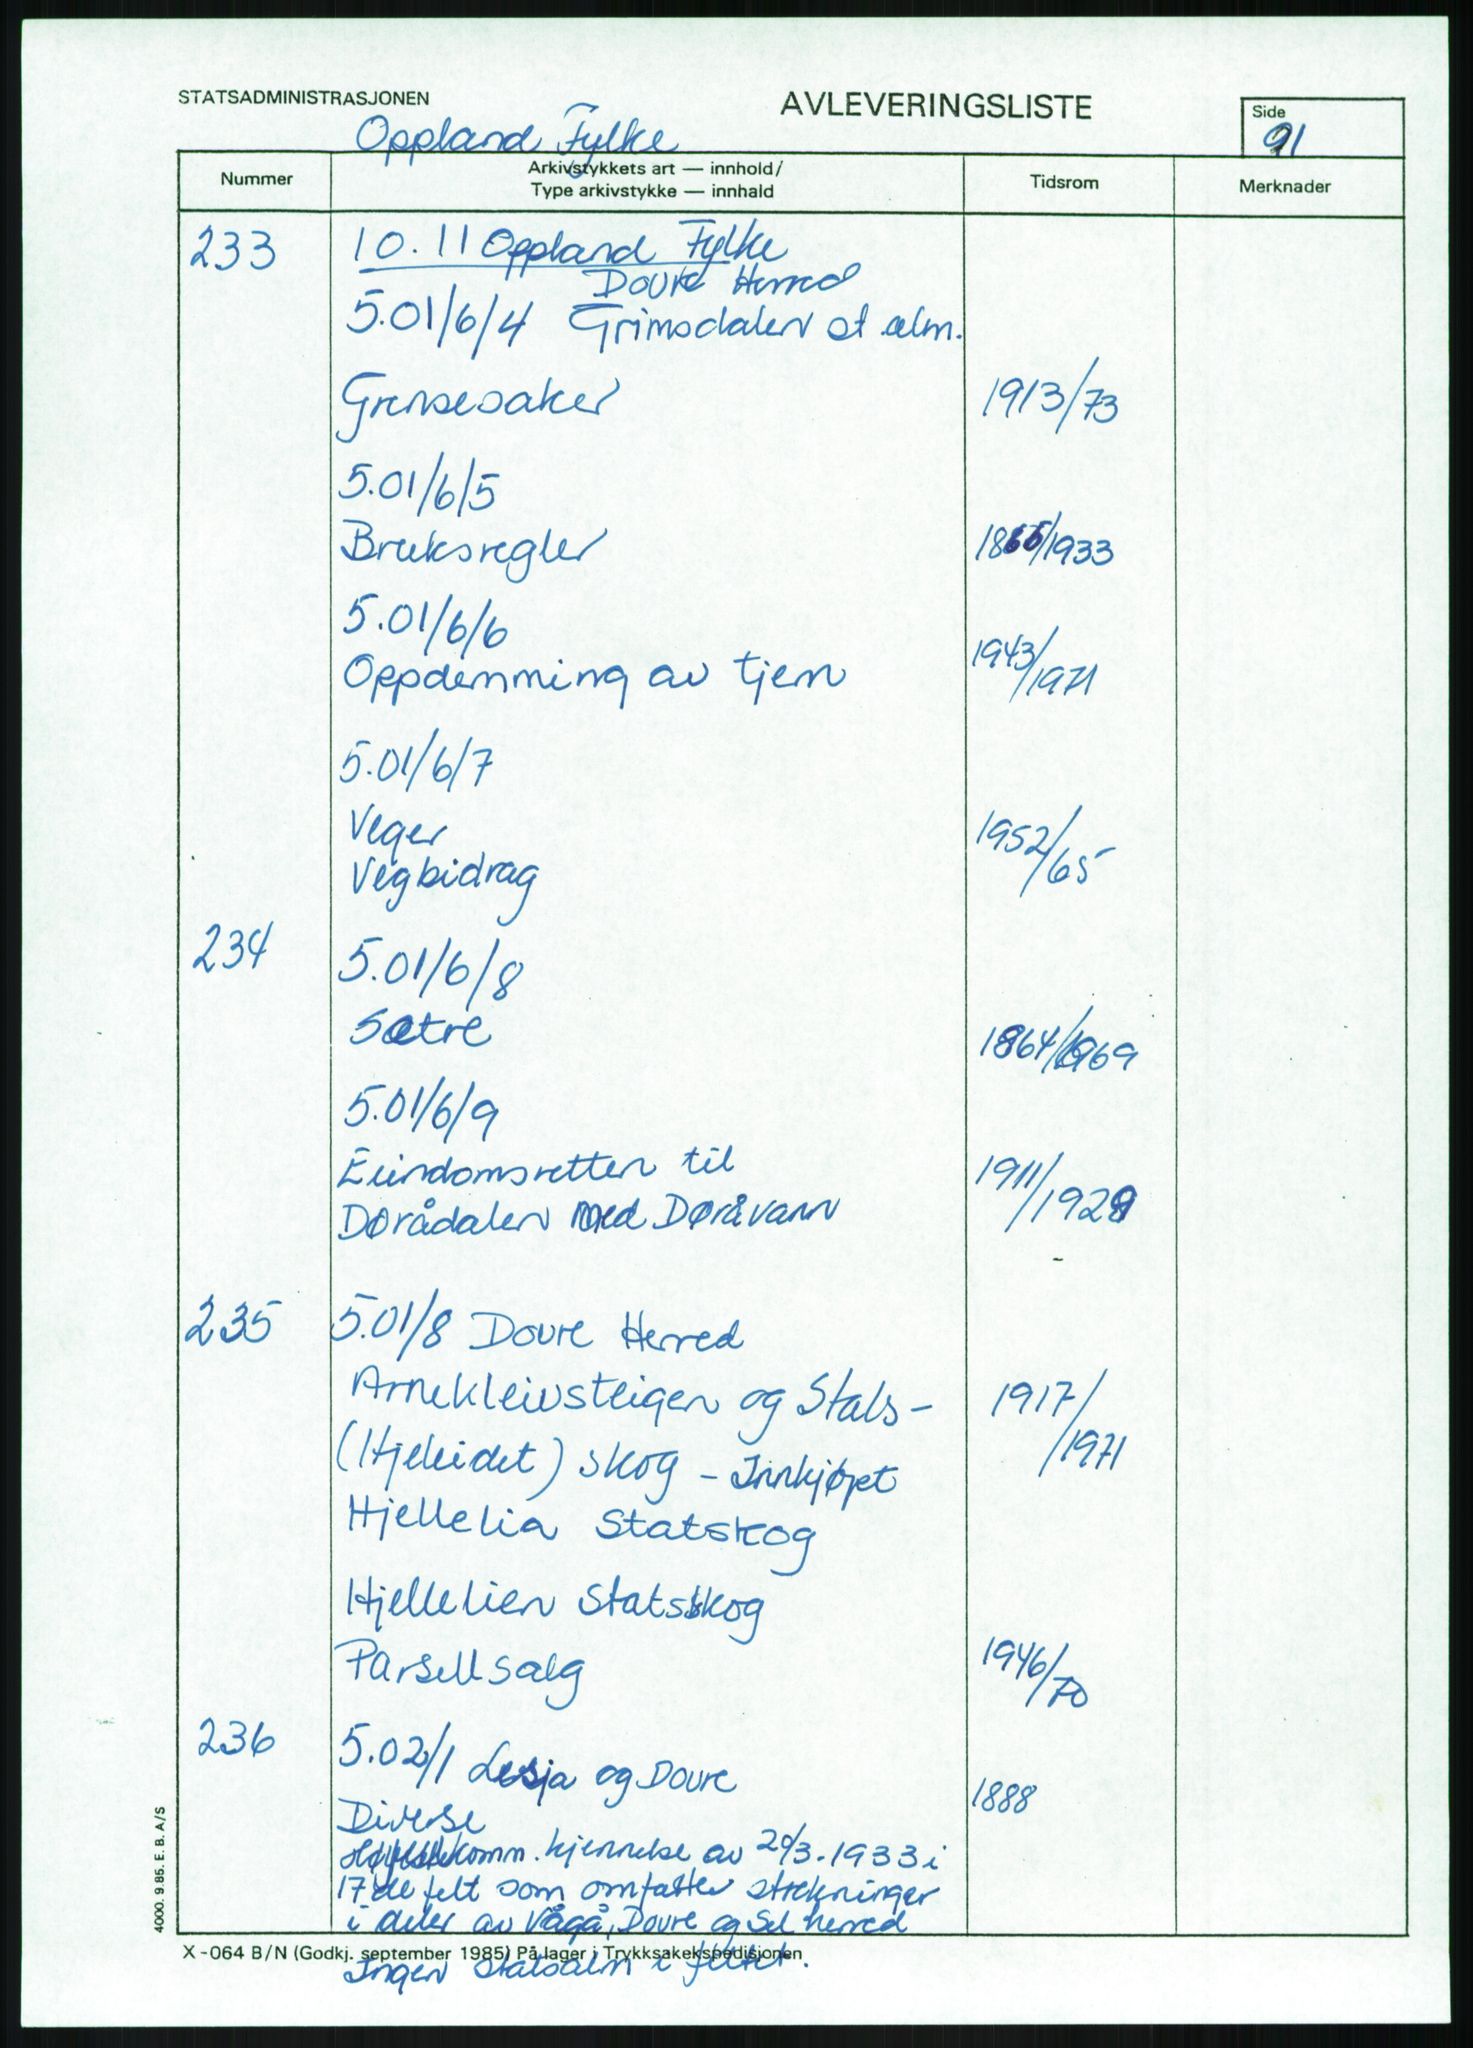 STATSADMINISTRASJONEN
AVLEVERINGSLISTE
Side
91
Oppland Fylke
Nummer
Arkivstykkets art — innhold/
Type arkivstykke — innhald
Tidsrom
Merknader
233 10.11 Oppland Fylke
Dovre Herred
5.01/6/4 Grimsdalen st alm.
Grensesaker 1913/73
5.01/6/5
Bruksregler 1865/1933
5.01/6/6
Oppdemming av tjern 1943/1971
5.01/6/7
Veger 1952/65
Vegbidrag
234 5.01/6/8
Sætre 1864/1969
5.01/6/9
Eiindomsretten til 1911/1929
Dørådalen med Døråvann
235 5.01/8 Dovre Herred
Arnekleivsteigen og Stals- 1917/1971
(Hjeleidet) skog - Innkjøpet
Hjellelia Statskog
Hjellelien Statsskog
Parsellsalg 1946/70
236 5.02/1 Lesja og Dovre
Diverse 1888
Høyfjellskomm. kjennelse av 20/3.1933 i
17de felt som omfatter strekninger
i deler av Vågå, Dovre og Sel herred
Ingen Statsalm i feltet.
4000. 9.85. E. B. A/S
X-064 B/N (Godkj. september 1985) På lager i Trykksakekspedisjonen